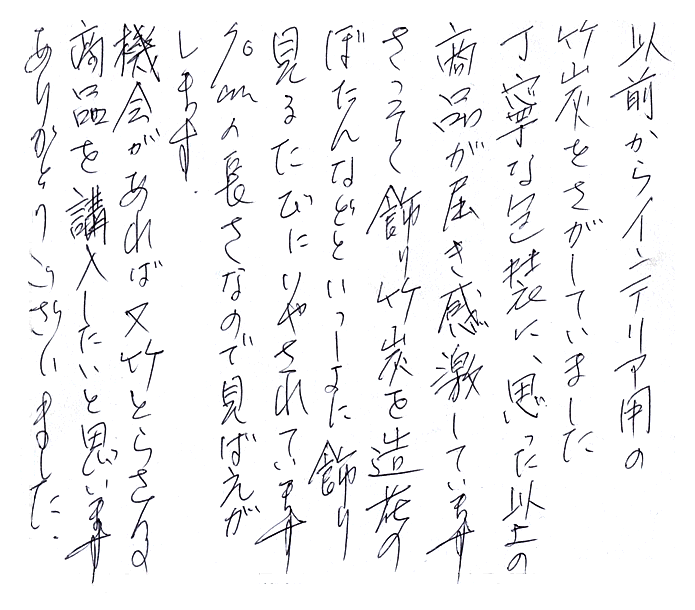 以前からインテリア用の
竹炭をさがしていました
丁寧な包装に、思った以上の
商品が届き感激しています
さっそく飾り竹炭を造花の
ぼたんなどといっしょに飾り
見るたびにいやされています
90cmの長さなので見ばえが
します.
機会があれば又竹とらさまの
商品を講入したいと思います
ありがとうございました.